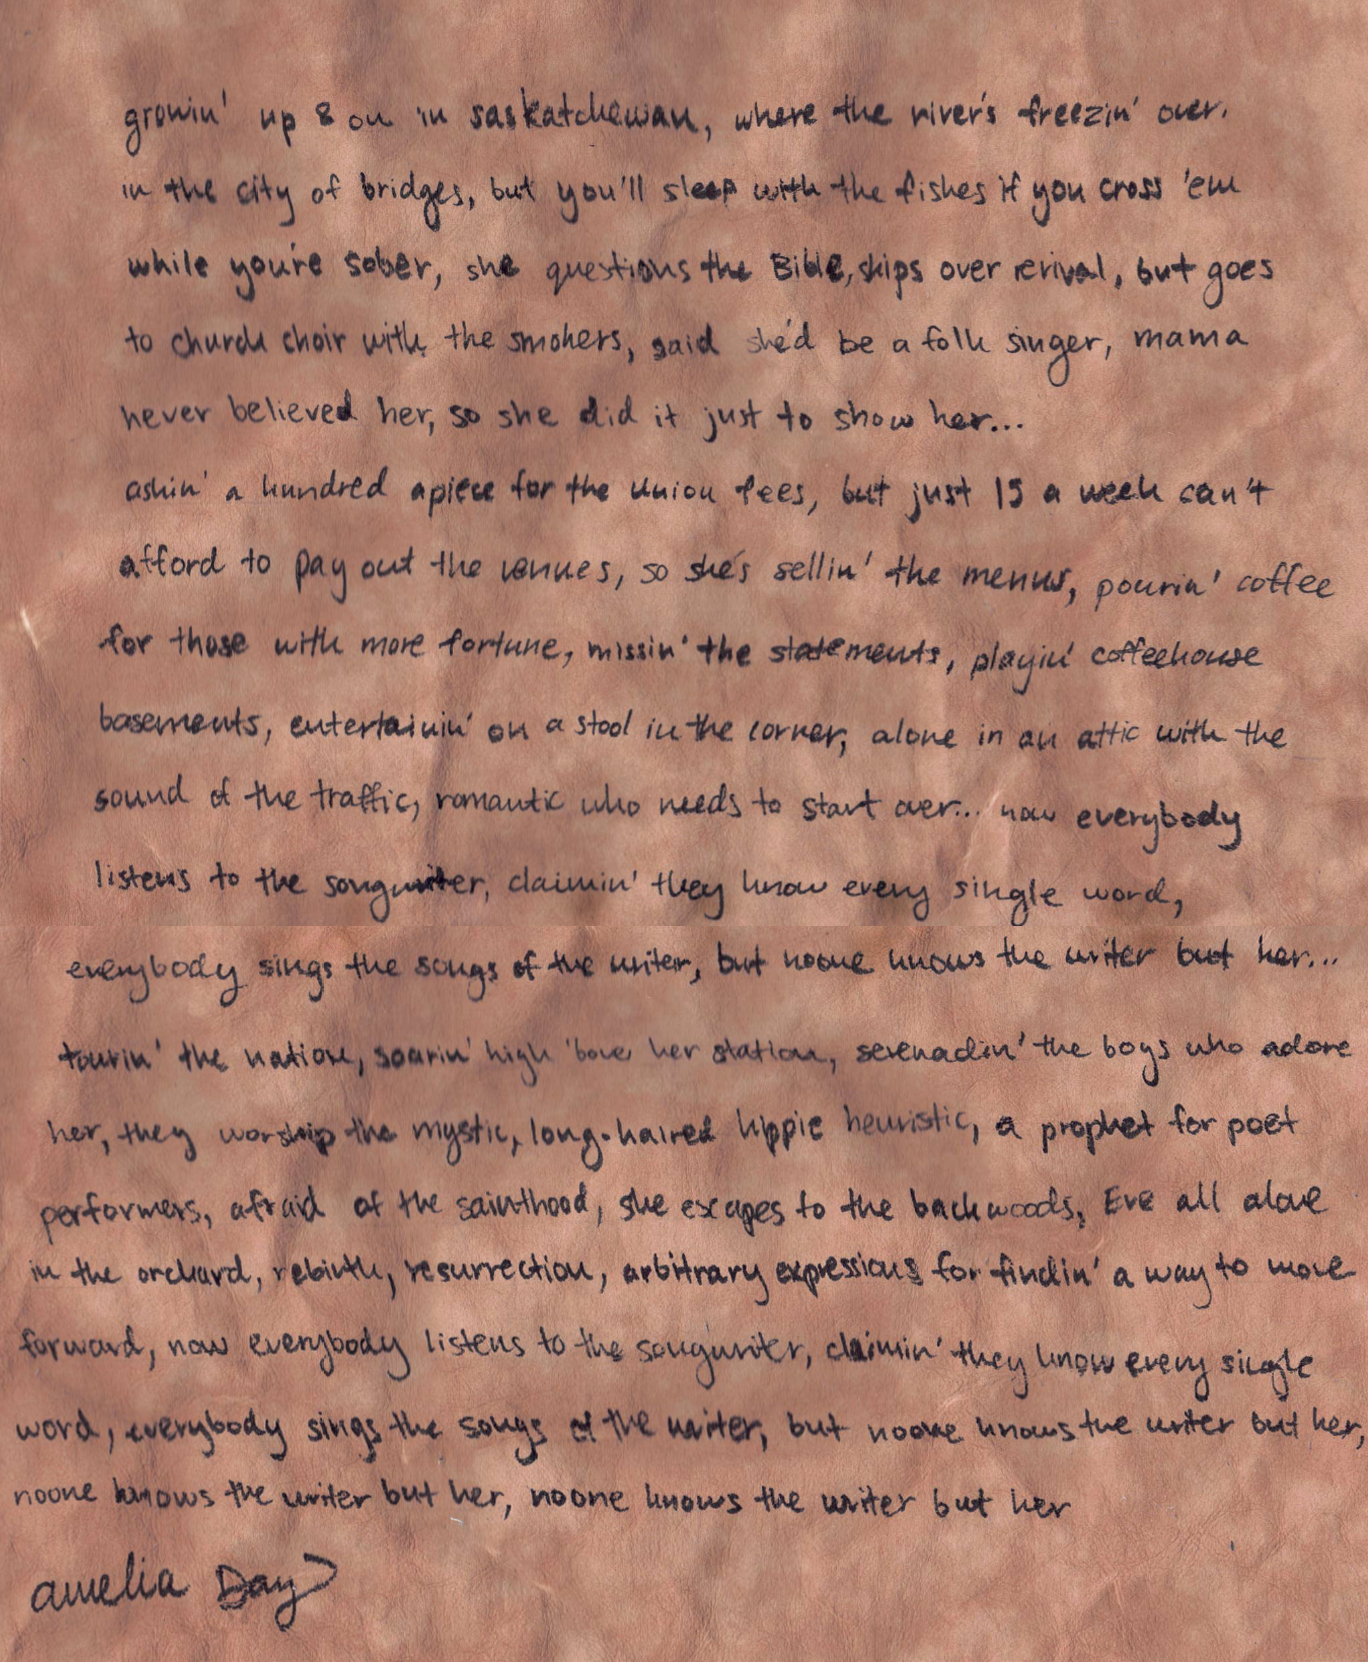 growin' up & on in saskatchewan, where the river's freezin' over.
in the city of bridges, but you'll sleep with the fishes if you cross 'em
while you're sober, she questions the Bible, skips over revival, but goes
to church choir with the smokers, said she'd be a folk singer, mama
never believed her, so she did it just to show her...
askin' a hundred apiece for the union fees, but just 15 a week can't
afford to pay out the venues, so she's sellin' the menus, pourin' coffee
for those with more fortune, missin' the statements, playin' coffeehouse
basements, entertainin' on a stool in the corner, alone in an attic with the
sound of the traffic, romantic who needs to start over... now everybody
listens to the songwriter, claimin' they know every single word,
everybody sings the songs of the writer, but noone knows the writer but her...
tourin' the nation, soarin' high 'bove her station, serenadin' the boys who adore
her, they worship the mystic, long-haired hippie heuristic, a prophet for poet
performers, afraid of the sainthood, she escapes to the backwoods, Eve all alone
in the orchard, rebirth, resurrection, arbitrary expressions for findin' a way to move
forward, now everybody listens to the songwriter, claimin' they know every single
word, everybody sings the songs of the writer, but noone knows the writer but her,
noone knows the writer but her, noone knows the writer but her
amelia Day